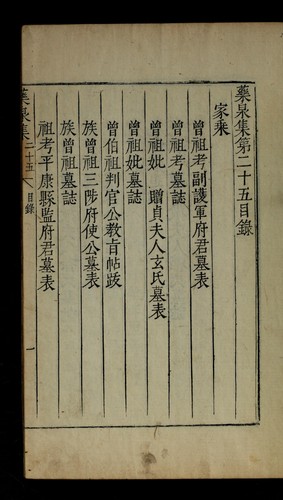 藥泉集第二十五目錄
家乘
曾祖考副護軍府君墓表
曾祖考墓誌
曾祖妣 贈貞夫人玄氏墓表
曾祖妣墓誌
曾伯祖判官公教旨帖跋
族曾祖三陟府使公墓表
族曾祖墓誌
祖考平康縣監府君墓表
藥泉集 二十五 目錄 一